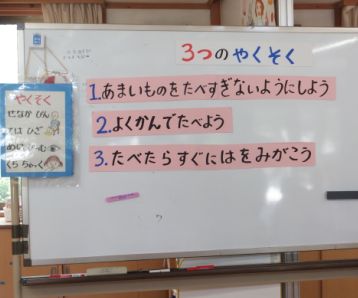 3つのやくそく
1.あまいものをたべすぎないようにしよう
2.よくかんでたべよう
3.たべたらすぐにはをみがこう
やくそく
せなか ぴん
ては ひざ
くち ちゃっく